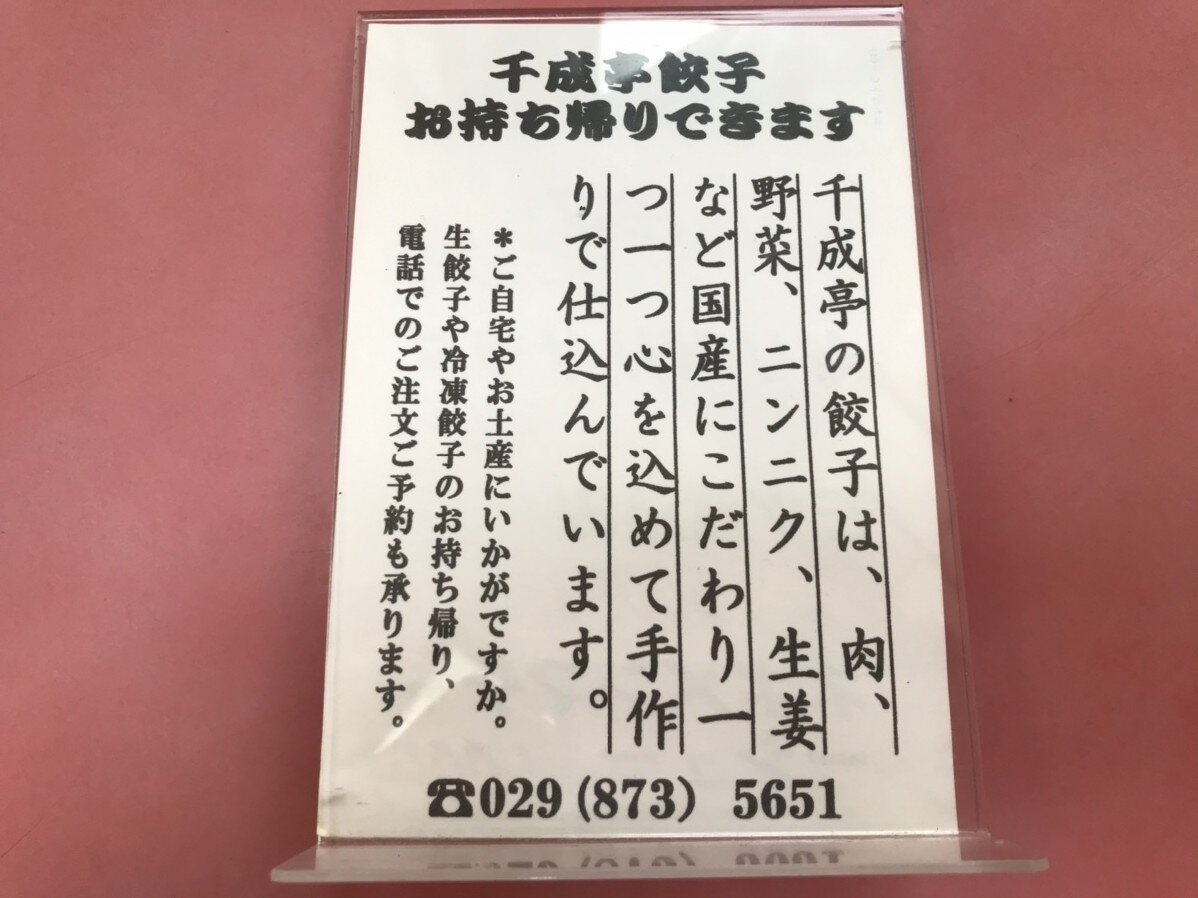 千成亭餃子
お持ち帰りできます
千成亭の餃子は、肉、
野菜、ニンニク、生姜
など国産にこだわり一
つ一つ心を込めて手作
りで仕込んでいます。
＊ご自宅やお土産にいかがですか。
生餃子や冷凍餃子のお持ち帰り、
電話でのご注文ご予約も承ります。
☎029(873) 5651